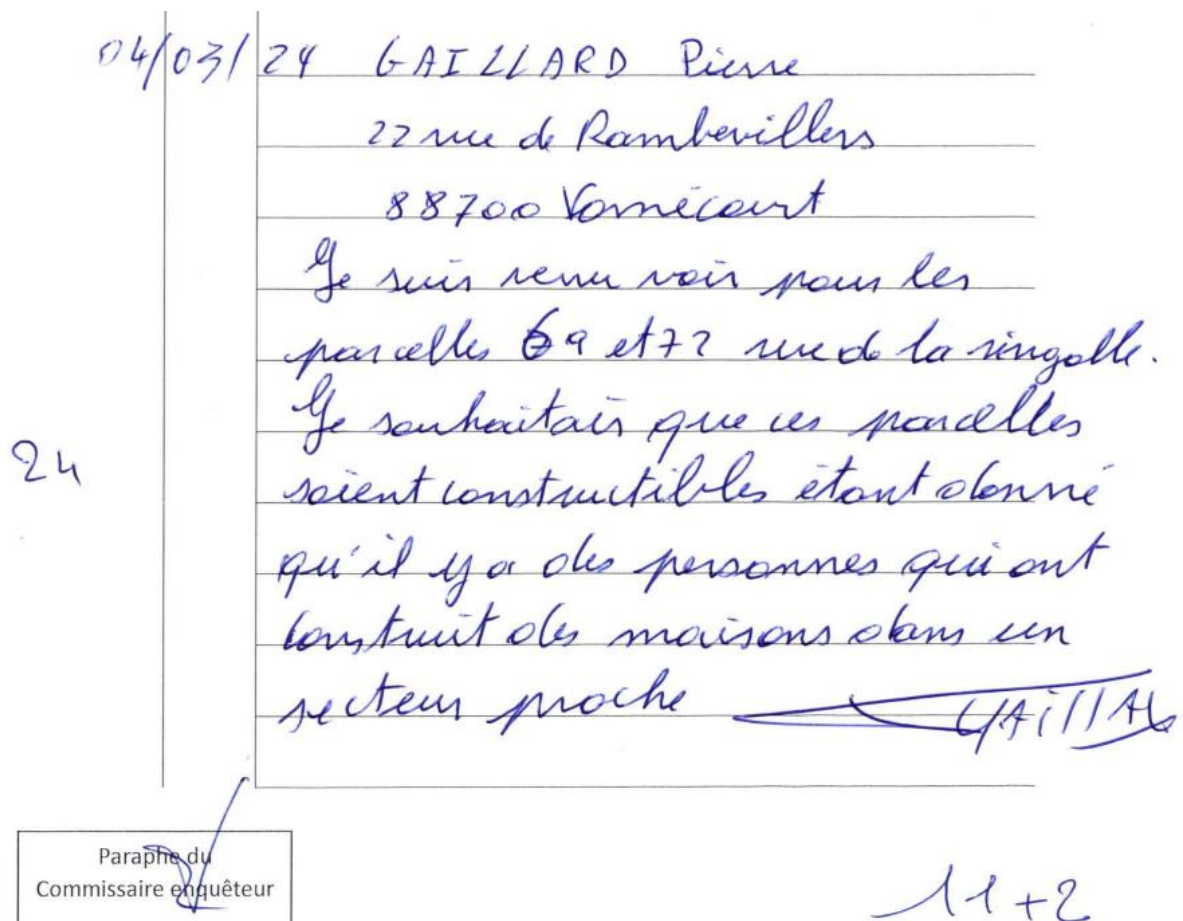 04/03/24 GAILLARD Pierre
22 rue de Rambervillers
88700 Vomécourt
Je suis venu voir pour les
parcelles 69 et 72 rue de la ringolle.
Je souhaitais que ces parcelles
24
soient constructibles étant donné
qu'il y a des personnes qui ont
construit des maisons dans un
secteur proche GAILLARD
Paraphe du
Commissaire enquêteur
11+2